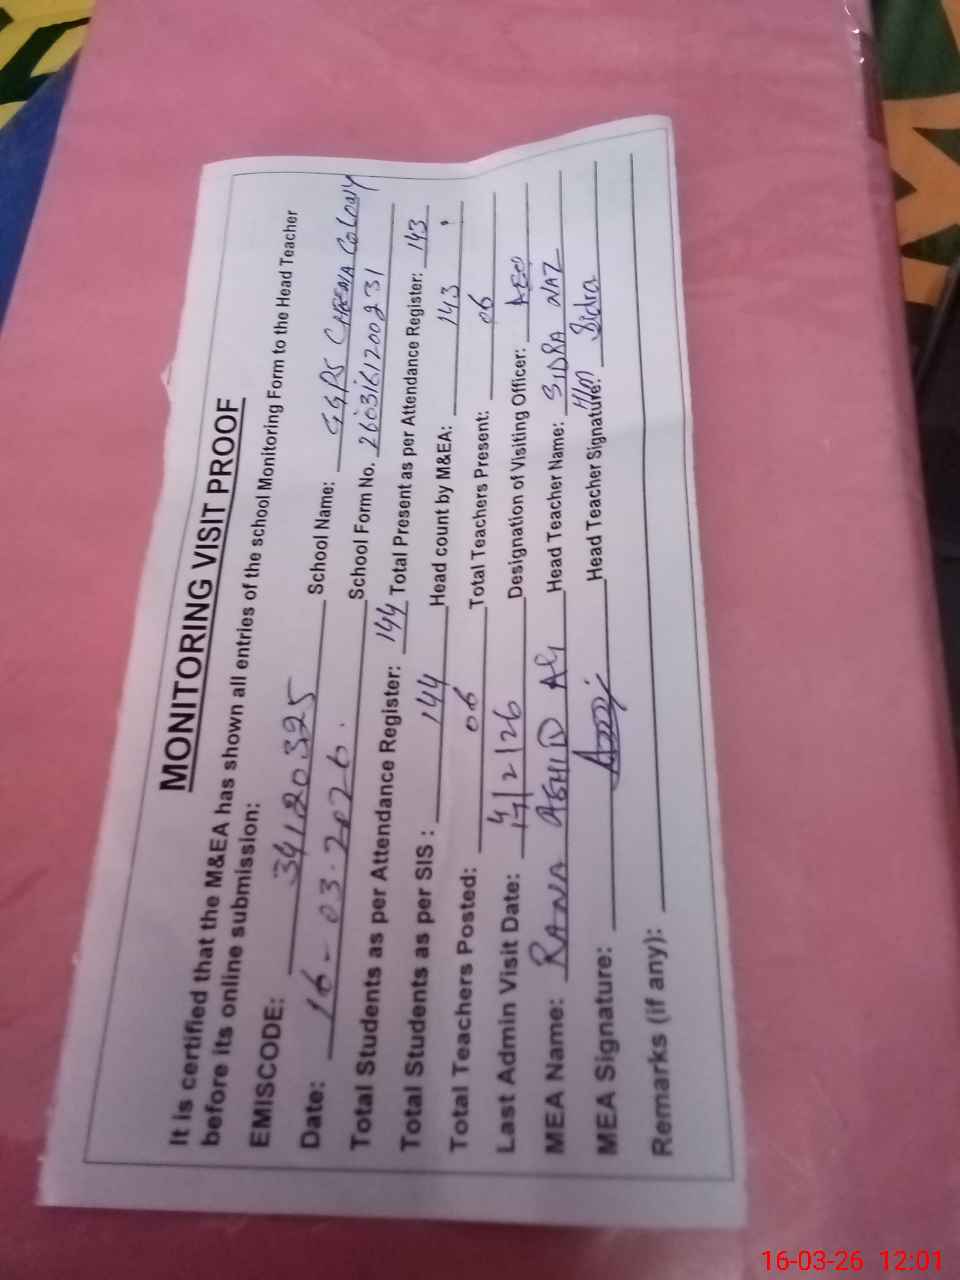 MONITORING VISIT PROOF
It is certified that the M&EA has shown all entries of the school Monitoring Form to the Head Teacher
before its online submission:
EMISCODE: 34120395 School Name: GGPS CHEEMA COLONY
Date: 16-03-2026. School Form No. 2603161200231
Total Students as per Attendance Register: 144 Total Present as per Attendance Register: 143
Total Students as per SIS : 144 Head count by M&EA: 143
Total Teachers Posted: 06 Total Teachers Present: 06
Last Admin Visit Date: 17/2/26 Designation of Visiting Officer: AEO
MEA Name: RANA Head Teacher Name: SIDRA NAZ
MEA Signature: Head Teacher Signature: H/m Sidra
Remarks (if any):
16-03-26 12:01